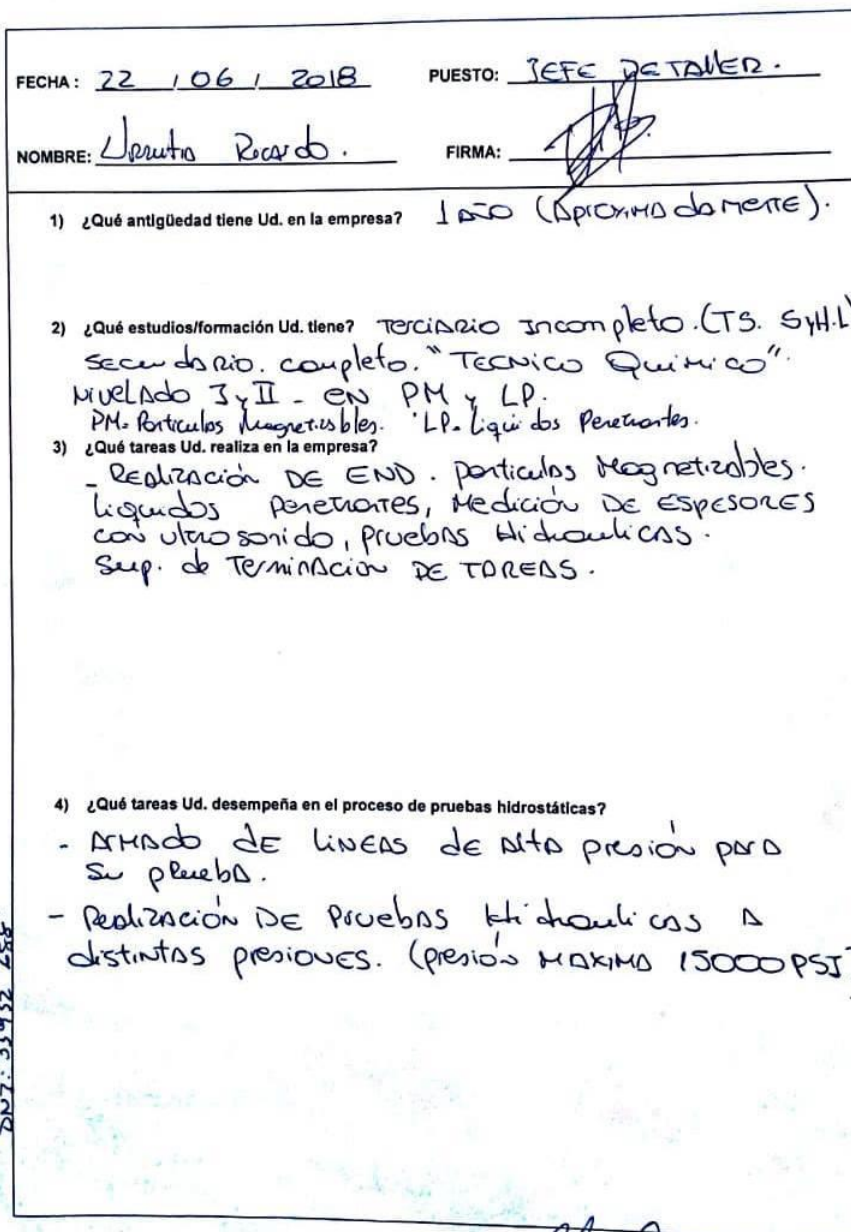 FECHA: 22 / 06 / 2018 PUESTO: JEFE DE TALLER.
NOMBRE: Urrutia Ricardo. FIRMA:
1) ¿Qué antigüedad tiene Ud. en la empresa? 1 AÑO (Aproximadamente).
2) ¿Qué estudios/formación Ud. tiene? Terciario Incompleto. (TS. SyH.L)
Secundario. completo. "TECNICO Químico".
Nivelado I y II - EN PM y LP.
PM= Particulas Magnetizables. LP= Liquidos Penetrantes.
3) ¿Qué tareas Ud. realiza en la empresa?
- REALIZACIÓN DE END. particulas Magnetizables.
Liquidos penetrantes, Medición DE ESPESORES
con ultrasonido, pruebas Hidraulicas.
Sup. de Terminacion DE TAREAS.
4) ¿Qué tareas Ud. desempeña en el proceso de pruebas hidrostáticas?
- ARMADO dE LINEAS dE Alta presión para
su prueba.
- Realización DE Pruebas Hidraulicas A
distintas presiones. (presión MAXIMA 15000 PSI)